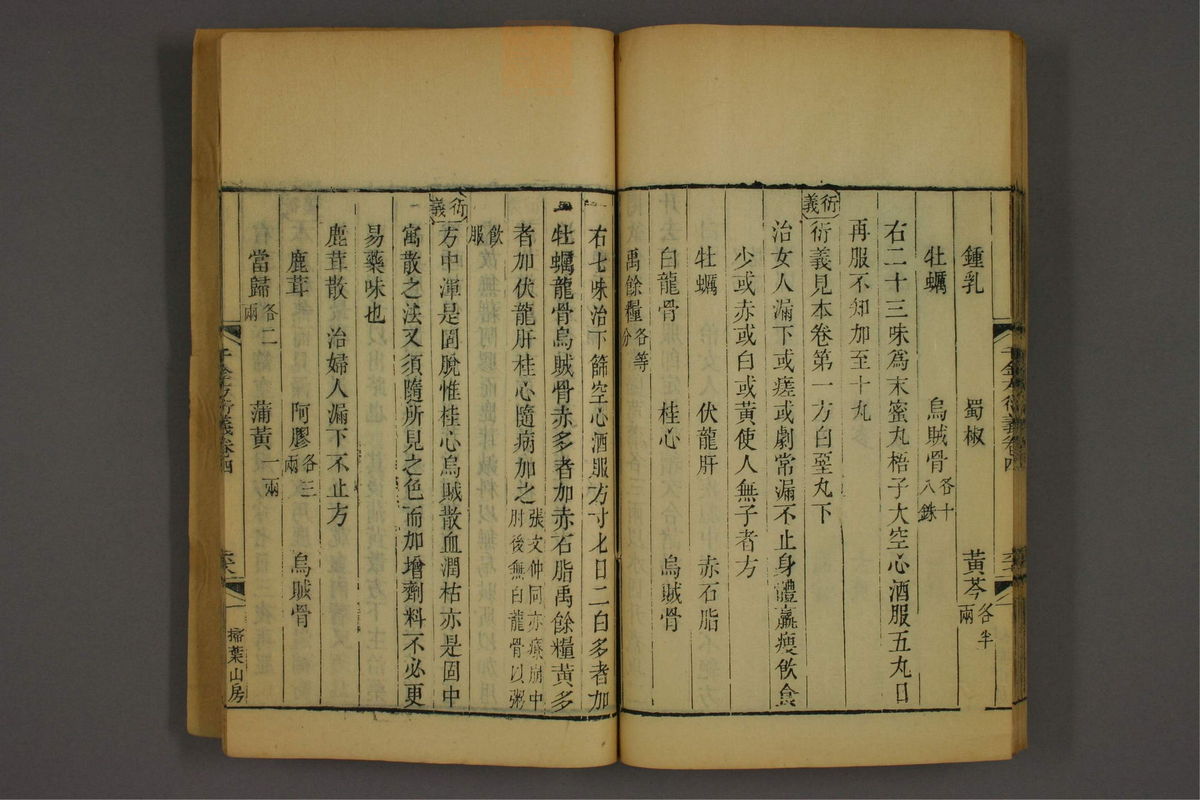 鍾乳 蜀椒 黃芩各半兩
牡蠣 烏賊骨各十八銖
右二十三味爲末蜜丸梧子大空心酒服五丸日
再服不知加至十丸
衍義 衍義見本卷第一方白堊丸下
治女人漏下或瘥或劇常漏不止身體羸瘦飲食
少或赤或白或黃使人無子者方
牡蠣 伏龍肝 赤石脂
白龍骨 桂心 烏賊骨
禹餘糧各等分
右七味治下篩空心酒服方寸匕日二白多者加
牡蠣龍骨烏賊骨赤多者加赤石脂禹餘糧黃多
者加伏龍肝桂心隨病加之張文仲同亦療崩中肘後無白龍骨以粥
飲服
衍義 方中渾是固脫惟桂心烏賊散血潤枯亦是固中
寓散之法又須隨所見之色而加增劑料不必更
易藥味也
鹿茸散 治婦人漏下不止方
鹿茸 阿膠各三兩 烏賊骨
當歸各二兩 蒲黃一兩
千金方衍義卷四
掃葉山房